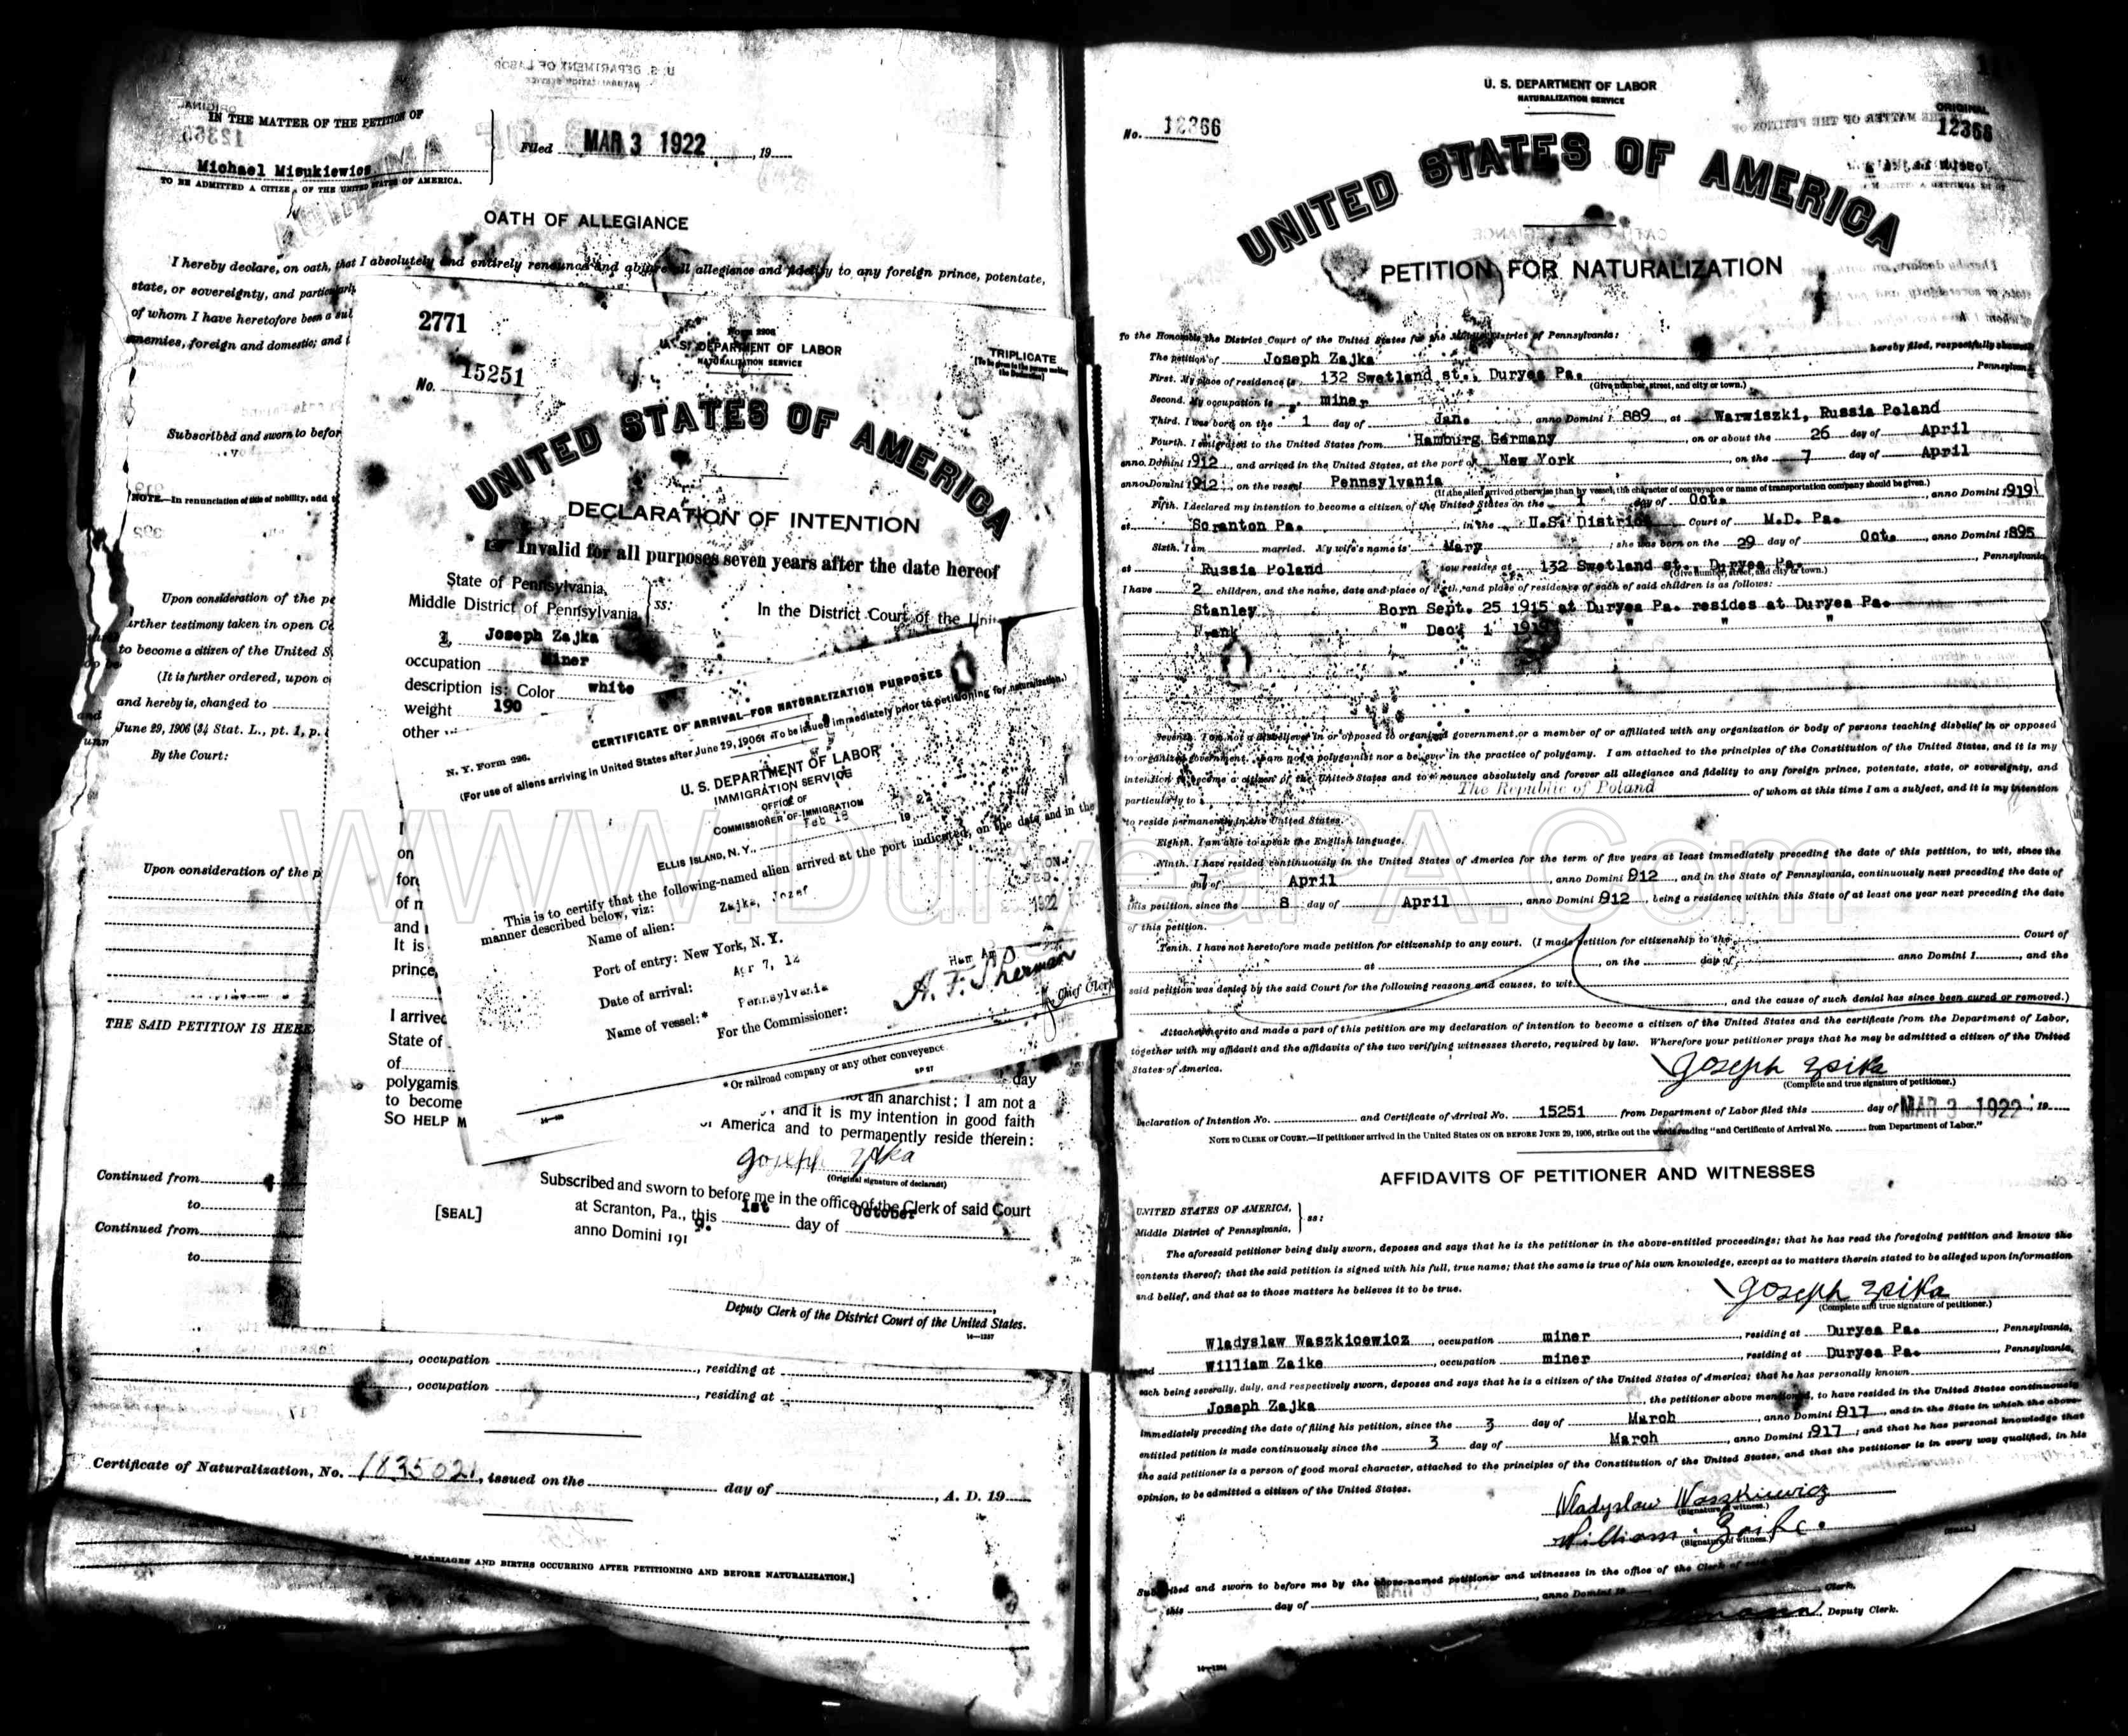 U. S. DEPARTMENT OF LABOR
IN THE MATTER OF THE PETITION OF
Michael Misukiewicz
TO BE ADMITTED A CITIZEN OF THE UNITED STATES OF AMERICA.
Filed MAR 3 1922, 19
OATH OF ALLEGIANCE
I hereby declare, on oath, that I absolutely and entirely renounce and abjure all allegiance and fidelity to any foreign prince, potentate,
state, or sovereignty, and particularly
of whom I have heretofore been a sub
enemies, foreign and domestic; and
Subscribed and sworn to befor
NOTE.—In renunciation of title of nobility, add
Upon consideration of the pe
urther testimony taken in open Co
to become a citizen of the United S
(It is further ordered, upon c
and hereby is, changed to
June 29, 1906 (34 Stat. L., pt. 1, p.
By the Court:
Upon consideration of the p
THE SAID PETITION IS HERE
Continued from
to
Continued from
to
2771
Form 2202
U. S. DEPARTMENT OF LABOR
NATURALIZATION SERVICE
TRIPLICATE
(To be given to the person making the Declaration)
No. 15251
UNITED STATES OF AMERICA
DECLARATION OF INTENTION
Invalid for all purposes seven years after the date hereof
State of Pennsylvania,
Middle District of Pennsylvania, ss:
In the District Court of the Unit
I, Joseph Zajka
occupation Miner
description is: Color white
weight 190
other
I
on
for
of n
and
It is
prince,
I arrived
State of
of
polygamis
to become
SO HELP M
N. Y. Form 226.
CERTIFICATE OF ARRIVAL—FOR NATURALIZATION PURPOSES
(For use of aliens arriving in United States after June 29, 1906. To be issued immediately prior to petitioning for naturalization.)
U. S. DEPARTMENT OF LABOR
IMMIGRATION SERVICE
OFFICE OF
COMMISSIONER OF IMMIGRATION
ELLIS ISLAND, N. Y. Feb 18 19
This is to certify that the following-named alien arrived at the port indicated, on the date and in the
manner described below, viz:
Name of alien: Zajka, Jozef
Port of entry: New York, N. Y.
Date of arrival: Apr 7, 12
Name of vessel:* Pennsylvania
For the Commissioner:
A. F. Sherman
Chief Clerk
1922
* Or railroad company or any other conveyance
day
not an anarchist; I am not a
, and it is my intention in good faith
of America and to permanently reside therein:
Joseph Zjka
(Original signature of declarant)
Subscribed and sworn to before me in the office of the Clerk of said Court
[SEAL]
at Scranton, Pa., this 1st day of October
anno Domini 1919.
Deputy Clerk of the District Court of the United States.
, occupation , residing at
, occupation , residing at
Certificate of Naturalization, No. 1835021, issued on the day of , A. D. 19
MARRIAGES AND BIRTHS OCCURRING AFTER PETITIONING AND BEFORE NATURALIZATION.]
U. S. DEPARTMENT OF LABOR
NATURALIZATION SERVICE
ORIGINAL
No. 12366
12366
UNITED STATES OF AMERICA
PETITION FOR NATURALIZATION
To the Honorable the District Court of the United States for the Middle District of Pennsylvania:
The petition of Joseph Zajka hereby filed, respectfully showeth
First. My place of residence is 132 Swetland st., Duryea Pa. , Pennsylvania
(Give number, street, and city or town.)
Second. My occupation is miner
Third. I was born on the 1 day of Jan. anno Domini 1889, at Warwiszki, Russia Poland
Fourth. I emigrated to the United States from Hamburg Germany on or about the 26 day of April
anno Domini 1912, and arrived in the United States, at the port of New York, on the 7 day of April
anno Domini 1912, on the vessel Pennsylvania
(If the alien arrived otherwise than by vessel, the character of conveyance or name of transportation company should be given.)
Fifth. I declared my intention to become a citizen of the United States on the 1 day of Oct. , anno Domini 1919
at Scranton Pa. in the U.S. District Court of M.D. Pa.
Sixth. I am married. My wife's name is Mary; she was born on the 29 day of Oct. , anno Domini 1895
at Russia Poland now resides at 132 Swetland st., Duryea Pa. , Pennsylvania
(Give number, street, and city or town.)
I have 2 children, and the name, date and place of birth, and place of residence of each of said children is as follows:
Stanley Born Sept. 25 1915 at Duryea Pa. resides at Duryea Pa.
Frank " Dec. 1 1919 " " "
Seventh. I am not a disbeliever in or opposed to organized government or a member of or affiliated with any organization or body of persons teaching disbelief in or opposed
to organized government. I am not a polygamist nor a believer in the practice of polygamy. I am attached to the principles of the Constitution of the United States, and it is my
intention to become a citizen of the United States and to renounce absolutely and forever all allegiance and fidelity to any foreign prince, potentate, state, or sovereignty, and
particularly to The Republic of Poland of whom at this time I am a subject, and it is my intention
to reside permanently in the United States.
Eighth. I am able to speak the English language.
Ninth. I have resided continuously in the United States of America for the term of five years at least immediately preceding the date of this petition, to wit, since the
7 day of April, anno Domini 1912, and in the State of Pennsylvania, continuously next preceding the date of
this petition, since the 8 day of April, anno Domini 1912, being a residence within this State of at least one year next preceding the date
of this petition.
Tenth. I have not heretofore made petition for citizenship to any court. (I made petition for citizenship to the Court of
at , on the day of anno Domini 1 , and the
said petition was denied by the said Court for the following reasons and causes, to wit
, and the cause of such denial has since been cured or removed.)
Attached hereto and made a part of this petition are my declaration of intention to become a citizen of the United States and the certificate from the Department of Labor,
together with my affidavit and the affidavits of the two verifying witnesses thereto, required by law. Wherefore your petitioner prays that he may be admitted a citizen of the United
States of America.
Joseph Zaika
(Complete and true signature of petitioner.)
Declaration of Intention No. and Certificate of Arrival No. 15251 from Department of Labor filed this day of MAR 3 1922, 19
NOTE TO CLERK OF COURT.—If petitioner arrived in the United States ON OR BEFORE JUNE 29, 1906, strike out the words reading "and Certificate of Arrival No. from Department of Labor."
AFFIDAVITS OF PETITIONER AND WITNESSES
UNITED STATES OF AMERICA,
Middle District of Pennsylvania, ss:
The aforesaid petitioner being duly sworn, deposes and says that he is the petitioner in the above-entitled proceedings; that he has read the foregoing petition and knows the
contents thereof; that the said petition is signed with his full, true name; that the same is true of his own knowledge, except as to matters therein stated to be alleged upon information
and belief, and that as to those matters he believes it to be true.
Joseph Zaika
(Complete and true signature of petitioner.)
Wladyslaw Waszkicewicz, occupation miner, residing at Duryea Pa. , Pennsylvania,
and William Zaike, occupation miner, residing at Duryea Pa. , Pennsylvania,
each being severally, duly, and respectively sworn, deposes and says that he is a citizen of the United States of America; that he has personally known
Joseph Zajka, the petitioner above mentioned, to have resided in the United States continuously
immediately preceding the date of filing his petition, since the 3 day of March, anno Domini 1917, and in the State in which the above-
entitled petition is made continuously since the 3 day of March, anno Domini 1917; and that he has personal knowledge that
the said petitioner is a person of good moral character, attached to the principles of the Constitution of the United States, and that the petitioner is in every way qualified, in his
opinion, to be admitted a citizen of the United States.
Wladyslaw Waszkiewicz
(Signature of witness.)
William Zaike.
(Signature of witness.)
Subscribed and sworn to before me by the above-named petitioner and witnesses in the office of the Clerk of
this day of , anno Domini 19
Clerk.
Deputy Clerk.
www.DuryeaPA.Com